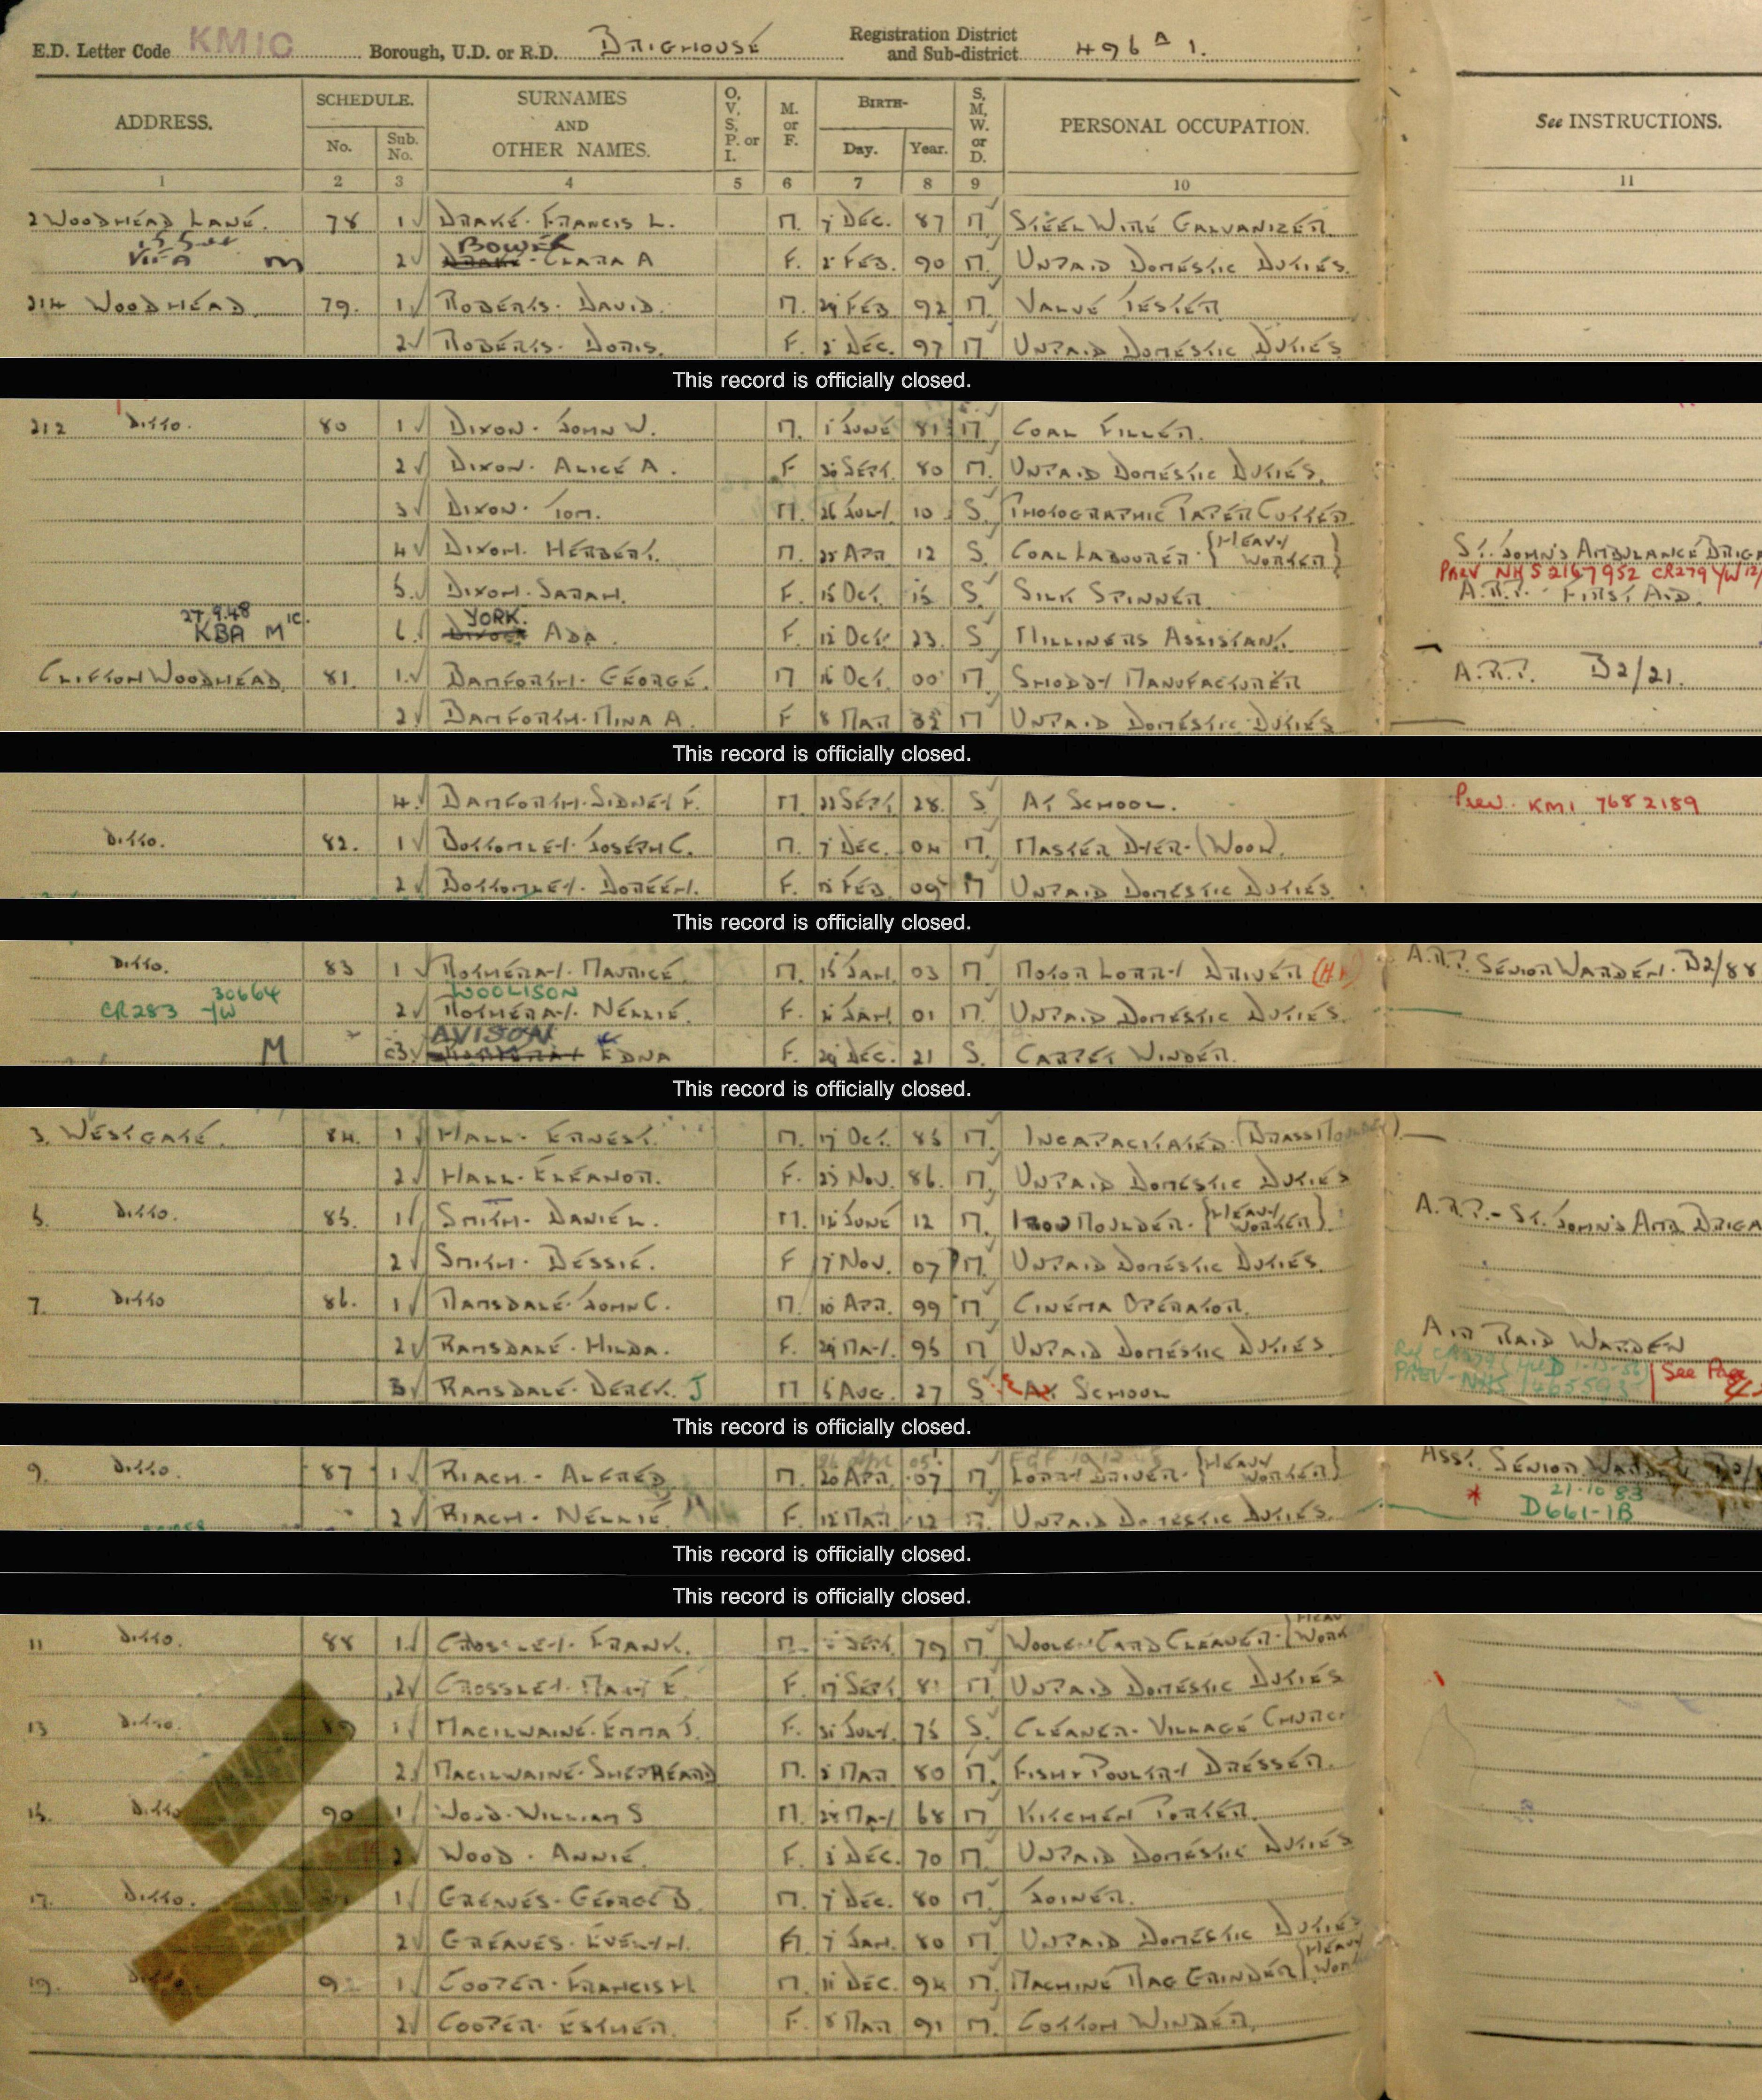 E.D. Letter Code KMIC Borough, U.D. or R.D. BRIGHOUSE Registration District and Sub-district 496 A 1.
ADDRESS. SCHEDULE. No. Sub. No. SURNAMES AND OTHER NAMES. O, V, S, P. or I. M. or F. BIRTH- Day. Year. S, M, W. or D. PERSONAL OCCUPATION. See INSTRUCTIONS.
1 2 3 4 5 6 7 8 9 10 11
2 WOODHEAD LANE. 78 1 DRAKE. FRANCIS L. M. 7 DEC. 87 M STEEL WIRE GALVANIZER.
BOWER
m 2 DRAKE. CLARA A F. FEB. 90 M. UNPAID DOMESTIC DUTIES.
214 WOODHEAD. 79. 1 ROBERTS. DAVID. M. 29 FEB 92 M VALVE TESTER
2 ROBERTS. DORIS. F. DEC. 97 M UNPAID DOMESTIC DUTIES
This record is officially closed.
212 DITTO. 80 1 DIXON. JOHN W. M. 1 JUNE 81 M COAL FILLER.
2 DIXON. ALICE A. F 30 SEPT. 80 M. UNPAID DOMESTIC DUTIES.
3 DIXON. TOM. M. 26 JULY. 10 S. PHOTOGRAPHIC PAPER CUTTER.
4 DIXON. HERBERT. M. APR 12 S. COAL LABOURER. {HEAVY WORKER} ST. JOHN'S AMBULANCE BRIG
PREV NHS 2167952 CR279 YW 12/
5. DIXON. SARAH. F. 15 OCT. 15 S. SILK SPINNER. A.R.P. FIRST AID.
27.9.48 YORK.
KBA M IC. 6. DIXON ADA. F. 12 OCT. 23. S MILLINERS ASSISTANT.
CLIFTON WOODHEAD 81. 1 BAMFORTH. GEORGE. M 16 OCT. 00 M SHODDY MANUFACTURER A.R.P. D2/21.
2 BAMFORTH. MINA A. F 8 MAR M UNPAID DOMESTIC DUTIES
This record is officially closed.
4. BAMFORTH. SIDNEY F. M 22 SEPT. 28. S AT SCHOOL. Prev. KMI 7682189
DITTO. 82. 1 BOTTOMLEY. JOSEPH C. M. 7 DEC. 04 M. MASTER DYER. (WOOL).
2 BOTTOMLEY. DOREEN. F. FEB. 09 M UNPAID DOMESTIC DUTIES
This record is officially closed.
DITTO. 83 1 ROTHERAY. MAURICE. M. 15 JAN. 03 M MOTOR LORRY DRIVER (H A.R.P. SENIOR WARDEN. D2/88
30664 WOOLISON
CR283 YW 2 ROTHERAY. NELLIE. F. JAN. 01 M. UNPAID DOMESTIC DUTIES.
AVISON
M 3 ROTHERAY EDNA F. 29 DEC. 21 S. CARPET WINDER.
This record is officially closed.
3. WESTGATE. 84. 1 HALL. ERNEST. M. 17 OCT. 85 M. INCAPACITATED.
2 HALL. ELEANOR. F. 23 NOV. 86. M. UNPAID DOMESTIC DUTIES
5. DITTO. 85. 1 SMITH. DANIEL. M. JUNE 12 M. IRON MOULDER. {HEAVY WORKER}. A.R.P.- ST. JOHN'S AMB BRIGA
2 SMITH. BESSIE. F 7 NOV. 07 M. UNPAID DOMESTIC DUTIES.
7. DITTO 86. 1 RAMSDALE. JOHN C. M. 10 APR. 99 M CINEMA OPERATOR.
2 RAMSDALE. HILDA. F. 29 MAY. 95 M UNPAID DOMESTIC DUTIES. AIR RAID WARDEN
3 RAMSDALE. DEREK. J M 5 AUG. 27 S AT SCHOOL PREV-NHS See Page
This record is officially closed.
9. DITTO. 87 1 RIACH. - ALFRED. M. 20 APR. 07 M LORRY DRIVER. {HEAVY WORKER} ASST. SENIOR
2 RIACH. NELLIE. F. 12 MAR. 12 M. UNPAID DOMESTIC DUTIES. * 21.10.83 D661-1B
This record is officially closed.
This record is officially closed.
11 DITTO. 88 1 CROSSLEY. FRANK. M. SEPT. 79 M WOOLEN CARD CLEANER. {HEAV WORK
2 CROSSLEY. MARY E. F. 17 SEPT. 81 M. UNPAID DOMESTIC DUTIES
13 DITTO. 89 1 MACILWAINE. EMMA J. F. 31 JULY. 75 S. CLEANER. VILLAGE CHURCH
2 MACILWAINE. SHEPHEARD M. MAR 80 M. FISH & POULTRY DRESSER.
15. DITTO 90 1 WOOD. WILLIAM S M. 28 MAY 68 M KITCHEN PORTER.
2 WOOD. ANNIE. F. 3 DEC. 70 M. UNPAID DOMESTIC DUTIES
17. DITTO. 1 GREAVES. GEORGE B. M. 7 DEC. 80 M JOINER.
2 GREAVES. EVELYN. F. 7 JAN. 80 M UNPAID DOMESTIC DUTIES
19. 92 1 COOPER. FRANCIS H M. 11 DEC. 94 M. MACHINE RAG GRINDER {HEAVY WORK
2 COOPER. ESTHER. F. 8 MAR 91 M. COTTON WINDER.